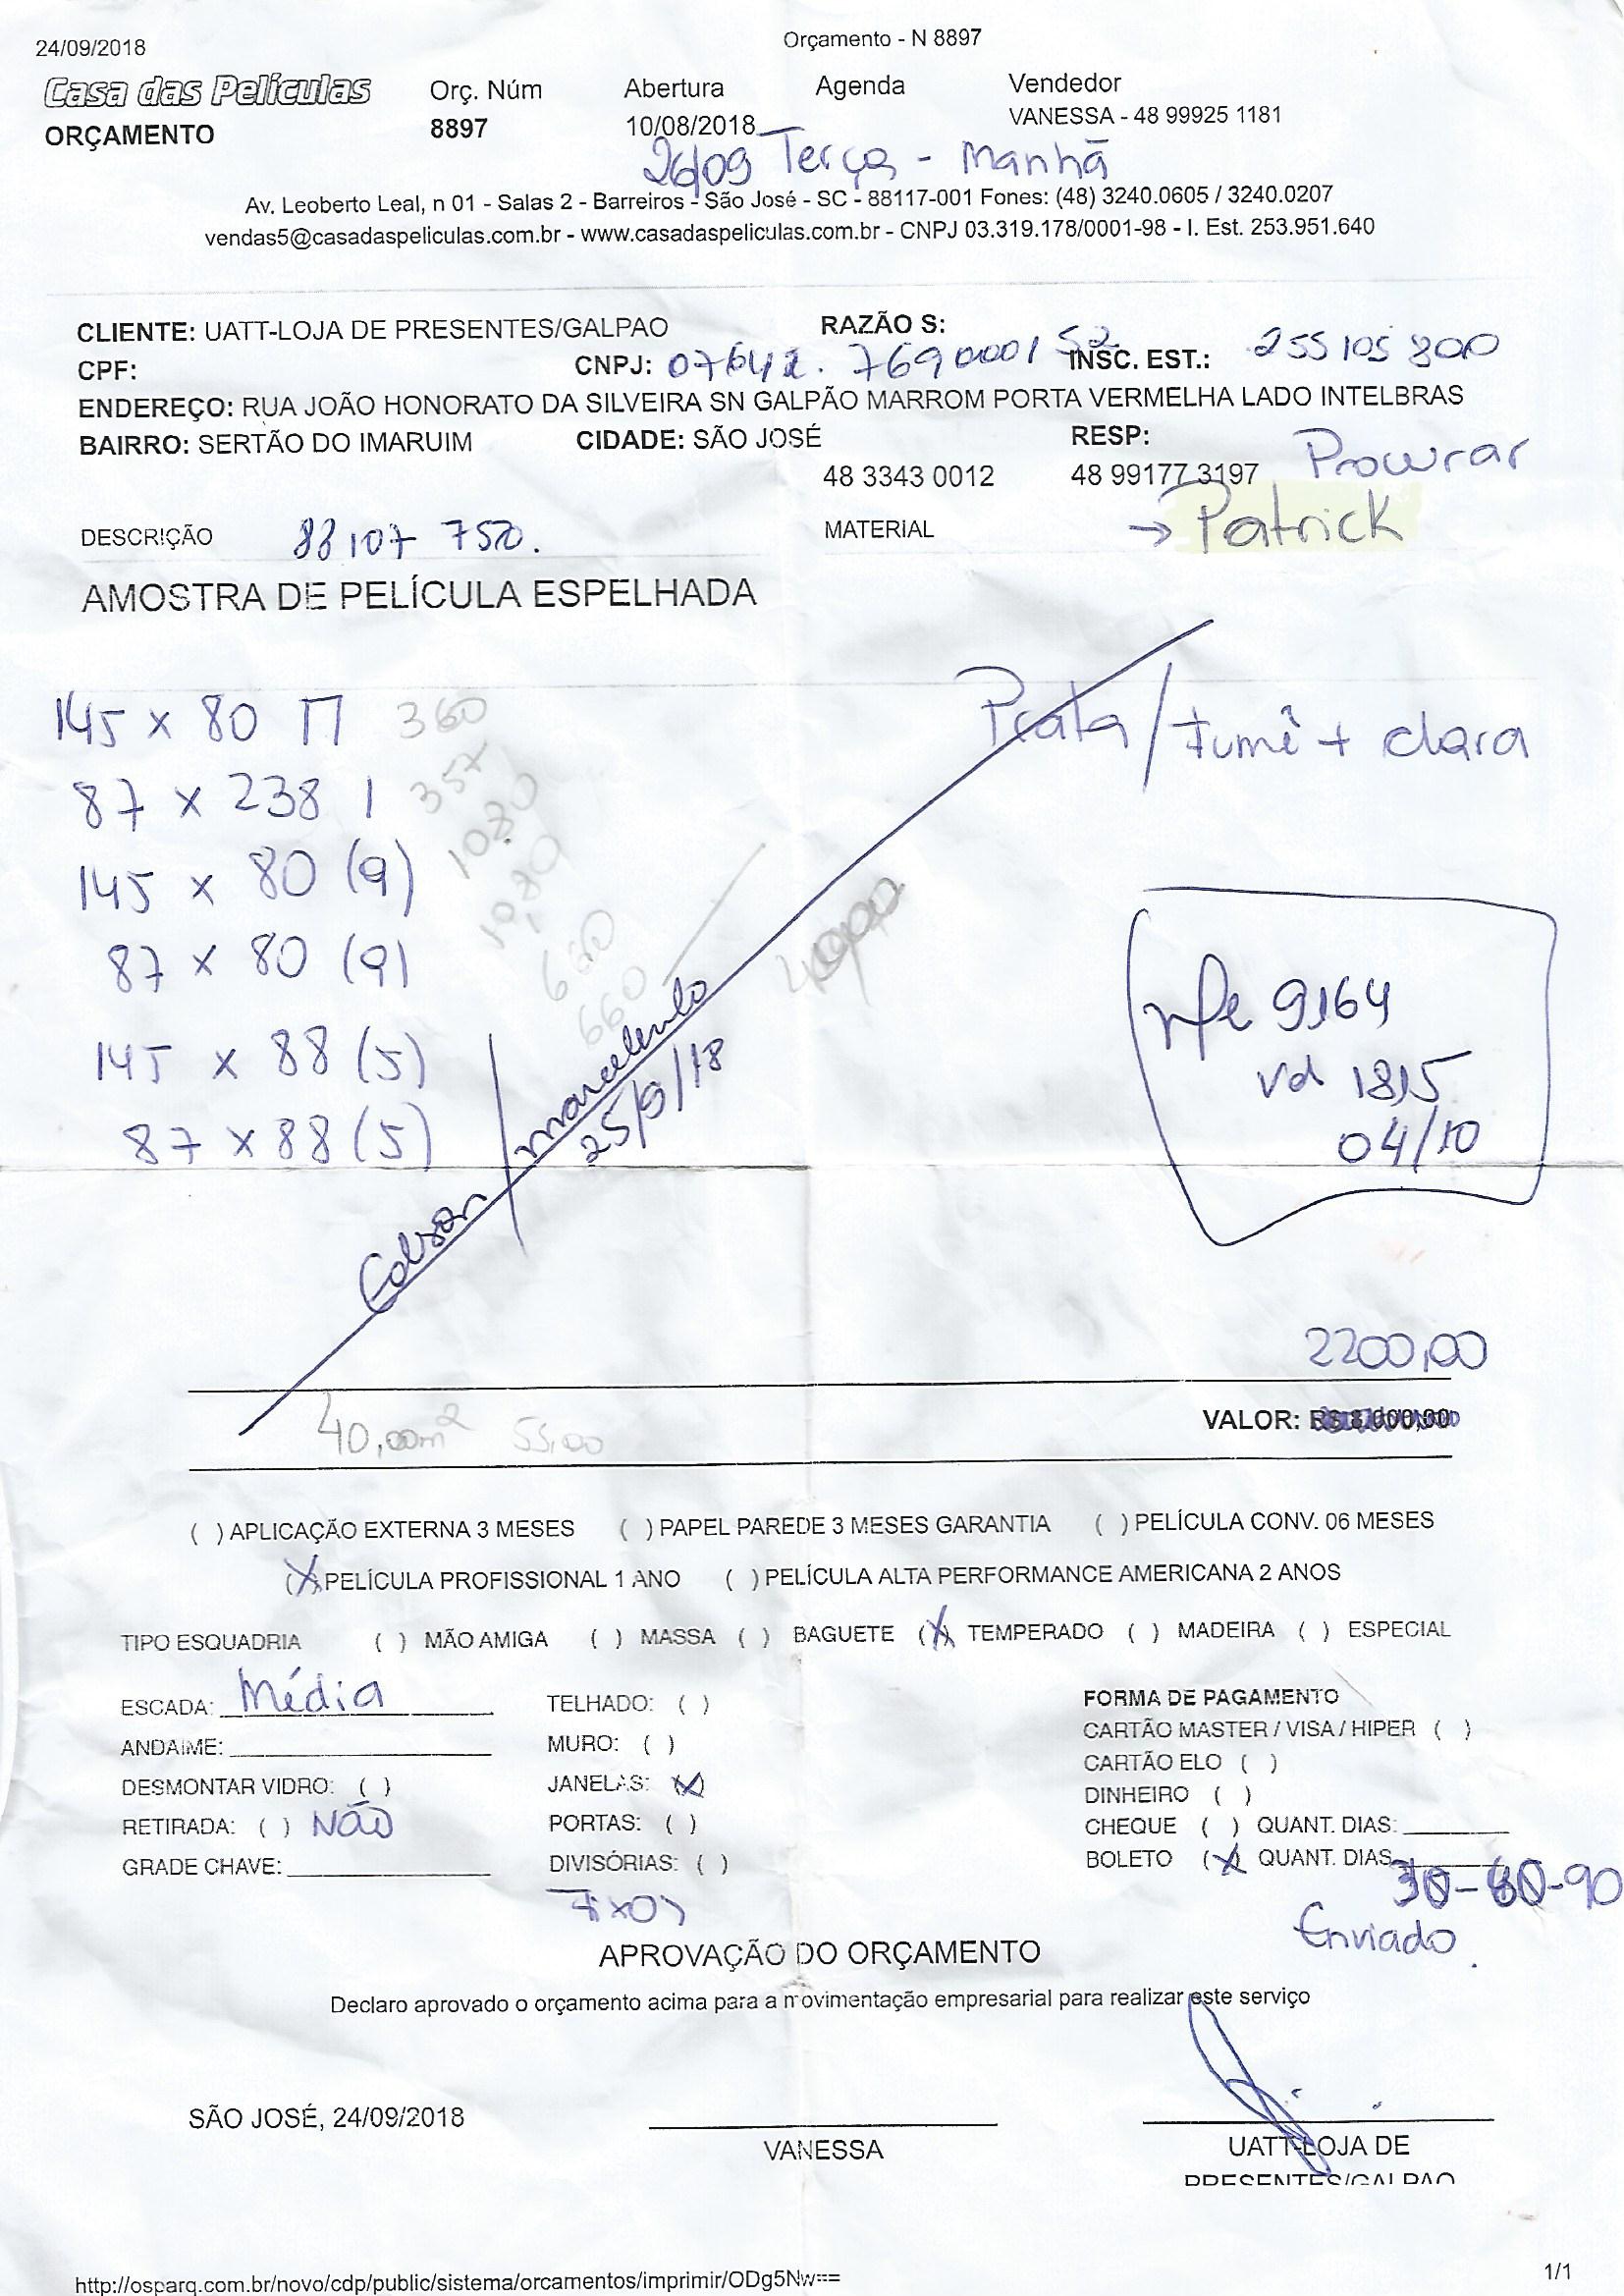 24/09/2018 Orçamento - N 8897
Casa das Películas Orç. Núm Abertura Agenda Vendedor
ORÇAMENTO 8897 10/08/2018 VANESSA - 48 99925 1181
26/09 Terça - Manhã
Av. Leoberto Leal, n 01 - Salas 2 - Barreiros - São José - SC - 88117-001 Fones: (48) 3240.0605 / 3240.0207
vendas5@casadaspeliculas.com.br - www.casadaspeliculas.com.br - CNPJ 03.319.178/0001-98 - I. Est. 253.951.640
CLIENTE: UATT-LOJA DE PRESENTES/GALPAO RAZÃO S:
CPF: CNPJ: 07642. 7690001 52 INSC. EST.: 255 105 800
ENDEREÇO: RUA JOÃO HONORATO DA SILVEIRA SN GALPÃO MARROM PORTA VERMELHA LADO INTELBRAS
BAIRRO: SERTÃO DO IMARUIM CIDADE: SÃO JOSÉ RESP:
48 3343 0012 48 99177 3197 Procurar
DESCRIÇÃO 88107 750. MATERIAL → Patrick
AMOSTRA DE PELÍCULA ESPELHADA
145 x 80 360
Prata / Fumê + clara
87 x 238 1 357
145 x 80 (9) 1080
87 x 80 (9) 1080
660
145 x 88 (5) 660
87 x 88 (5)
Edson / marcelinho
25/9/18
nfe 9164
vd 1815
04/10
2200,00
VALOR: R$ 8.000,00
40,00m² 55,00
( ) APLICAÇÃO EXTERNA 3 MESES ( ) PAPEL PAREDE 3 MESES GARANTIA ( ) PELÍCULA CONV. 06 MESES
(X) PELÍCULA PROFISSIONAL 1 ANO ( ) PELÍCULA ALTA PERFORMANCE AMERICANA 2 ANOS
TIPO ESQUADRIA ( ) MÃO AMIGA ( ) MASSA ( ) BAGUETE (X) TEMPERADO ( ) MADEIRA ( ) ESPECIAL
ESCADA: Média TELHADO: ( ) FORMA DE PAGAMENTO
CARTÃO MASTER / VISA / HIPER ( )
ANDAIME: MURO: ( )
CARTÃO ELO ( )
DESMONTAR VIDRO: ( ) JANELAS: (X)
DINHEIRO ( )
RETIRADA: ( ) NÃO PORTAS: ( ) CHEQUE ( ) QUANT. DIAS:
GRADE CHAVE: DIVISÓRIAS: ( ) BOLETO (X) QUANT. DIAS
30-60-90
Fixos
Enviado.
APROVAÇÃO DO ORÇAMENTO
Declaro aprovado o orçamento acima para a movimentação empresarial para realizar este serviço
SÃO JOSÉ, 24/09/2018
VANESSA UATT-LOJA DE
PRESENTES/GALPAO
http://osparq.com.br/novo/cdp/public/sistema/orcamentos/imprimir/ODg5Nw== 1/1